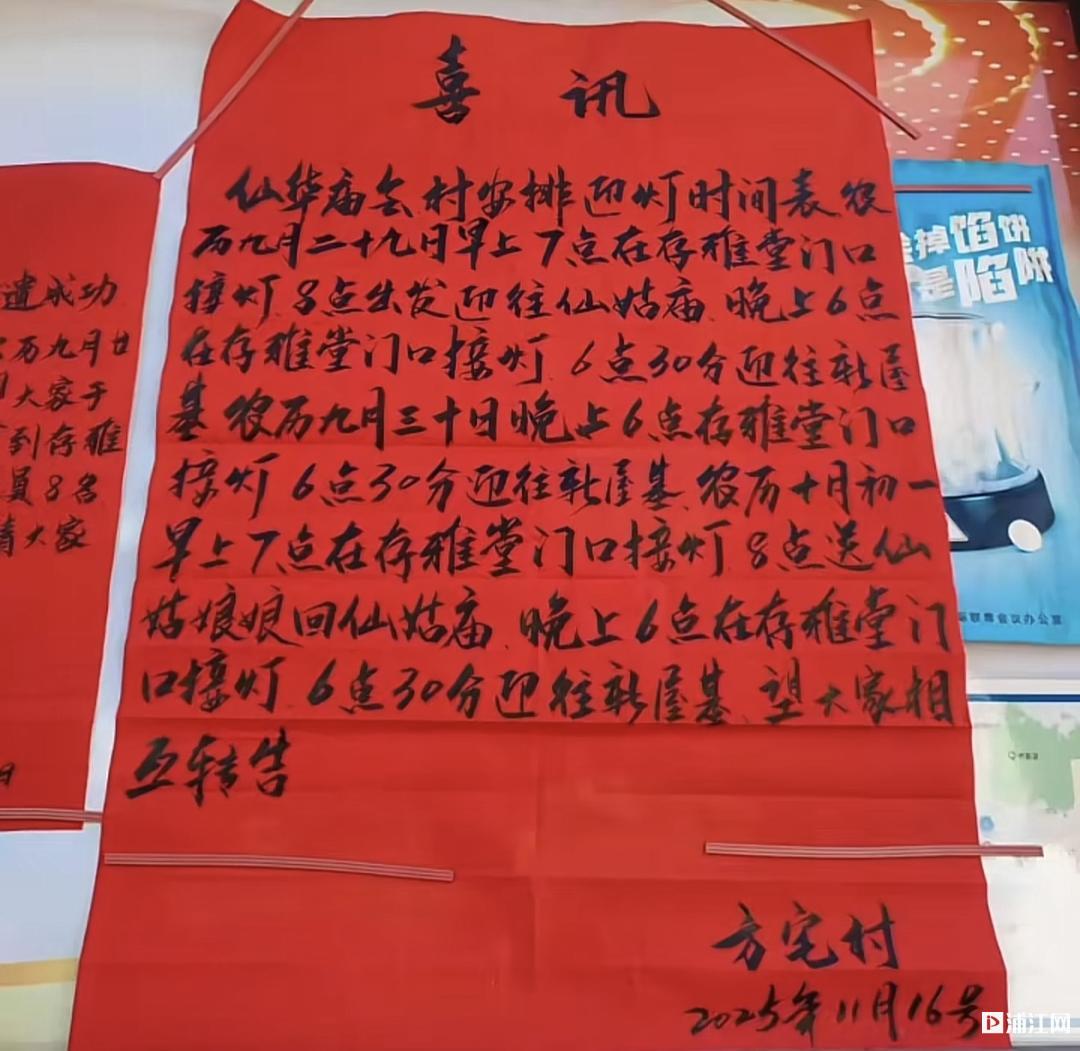 喜讯
仙华庙会村安排迎灯时间表农
历九月二十九日早上7点在存雅堂门口
接灯.8点出发迎往仙姑庙.晚上6点
在存雅堂门口接灯.6点30分迎往新屋
基.农历九月三十日晚上6点存雅堂门口
接灯.6点30分迎往新屋基.农历十月初一
早上7点在存雅堂门口接灯.8点送仙
姑娘娘回仙姑庙.晚上6点在存雅堂门
口接灯.6点30分迎往新屋基.望大家相
互转告
方宅村
2025年11月16号
遗成功
历九月廿
大家于
到存雅
员8名
请大家
日
掉馅饼
是陷阱
联席会议办公室
浦江网